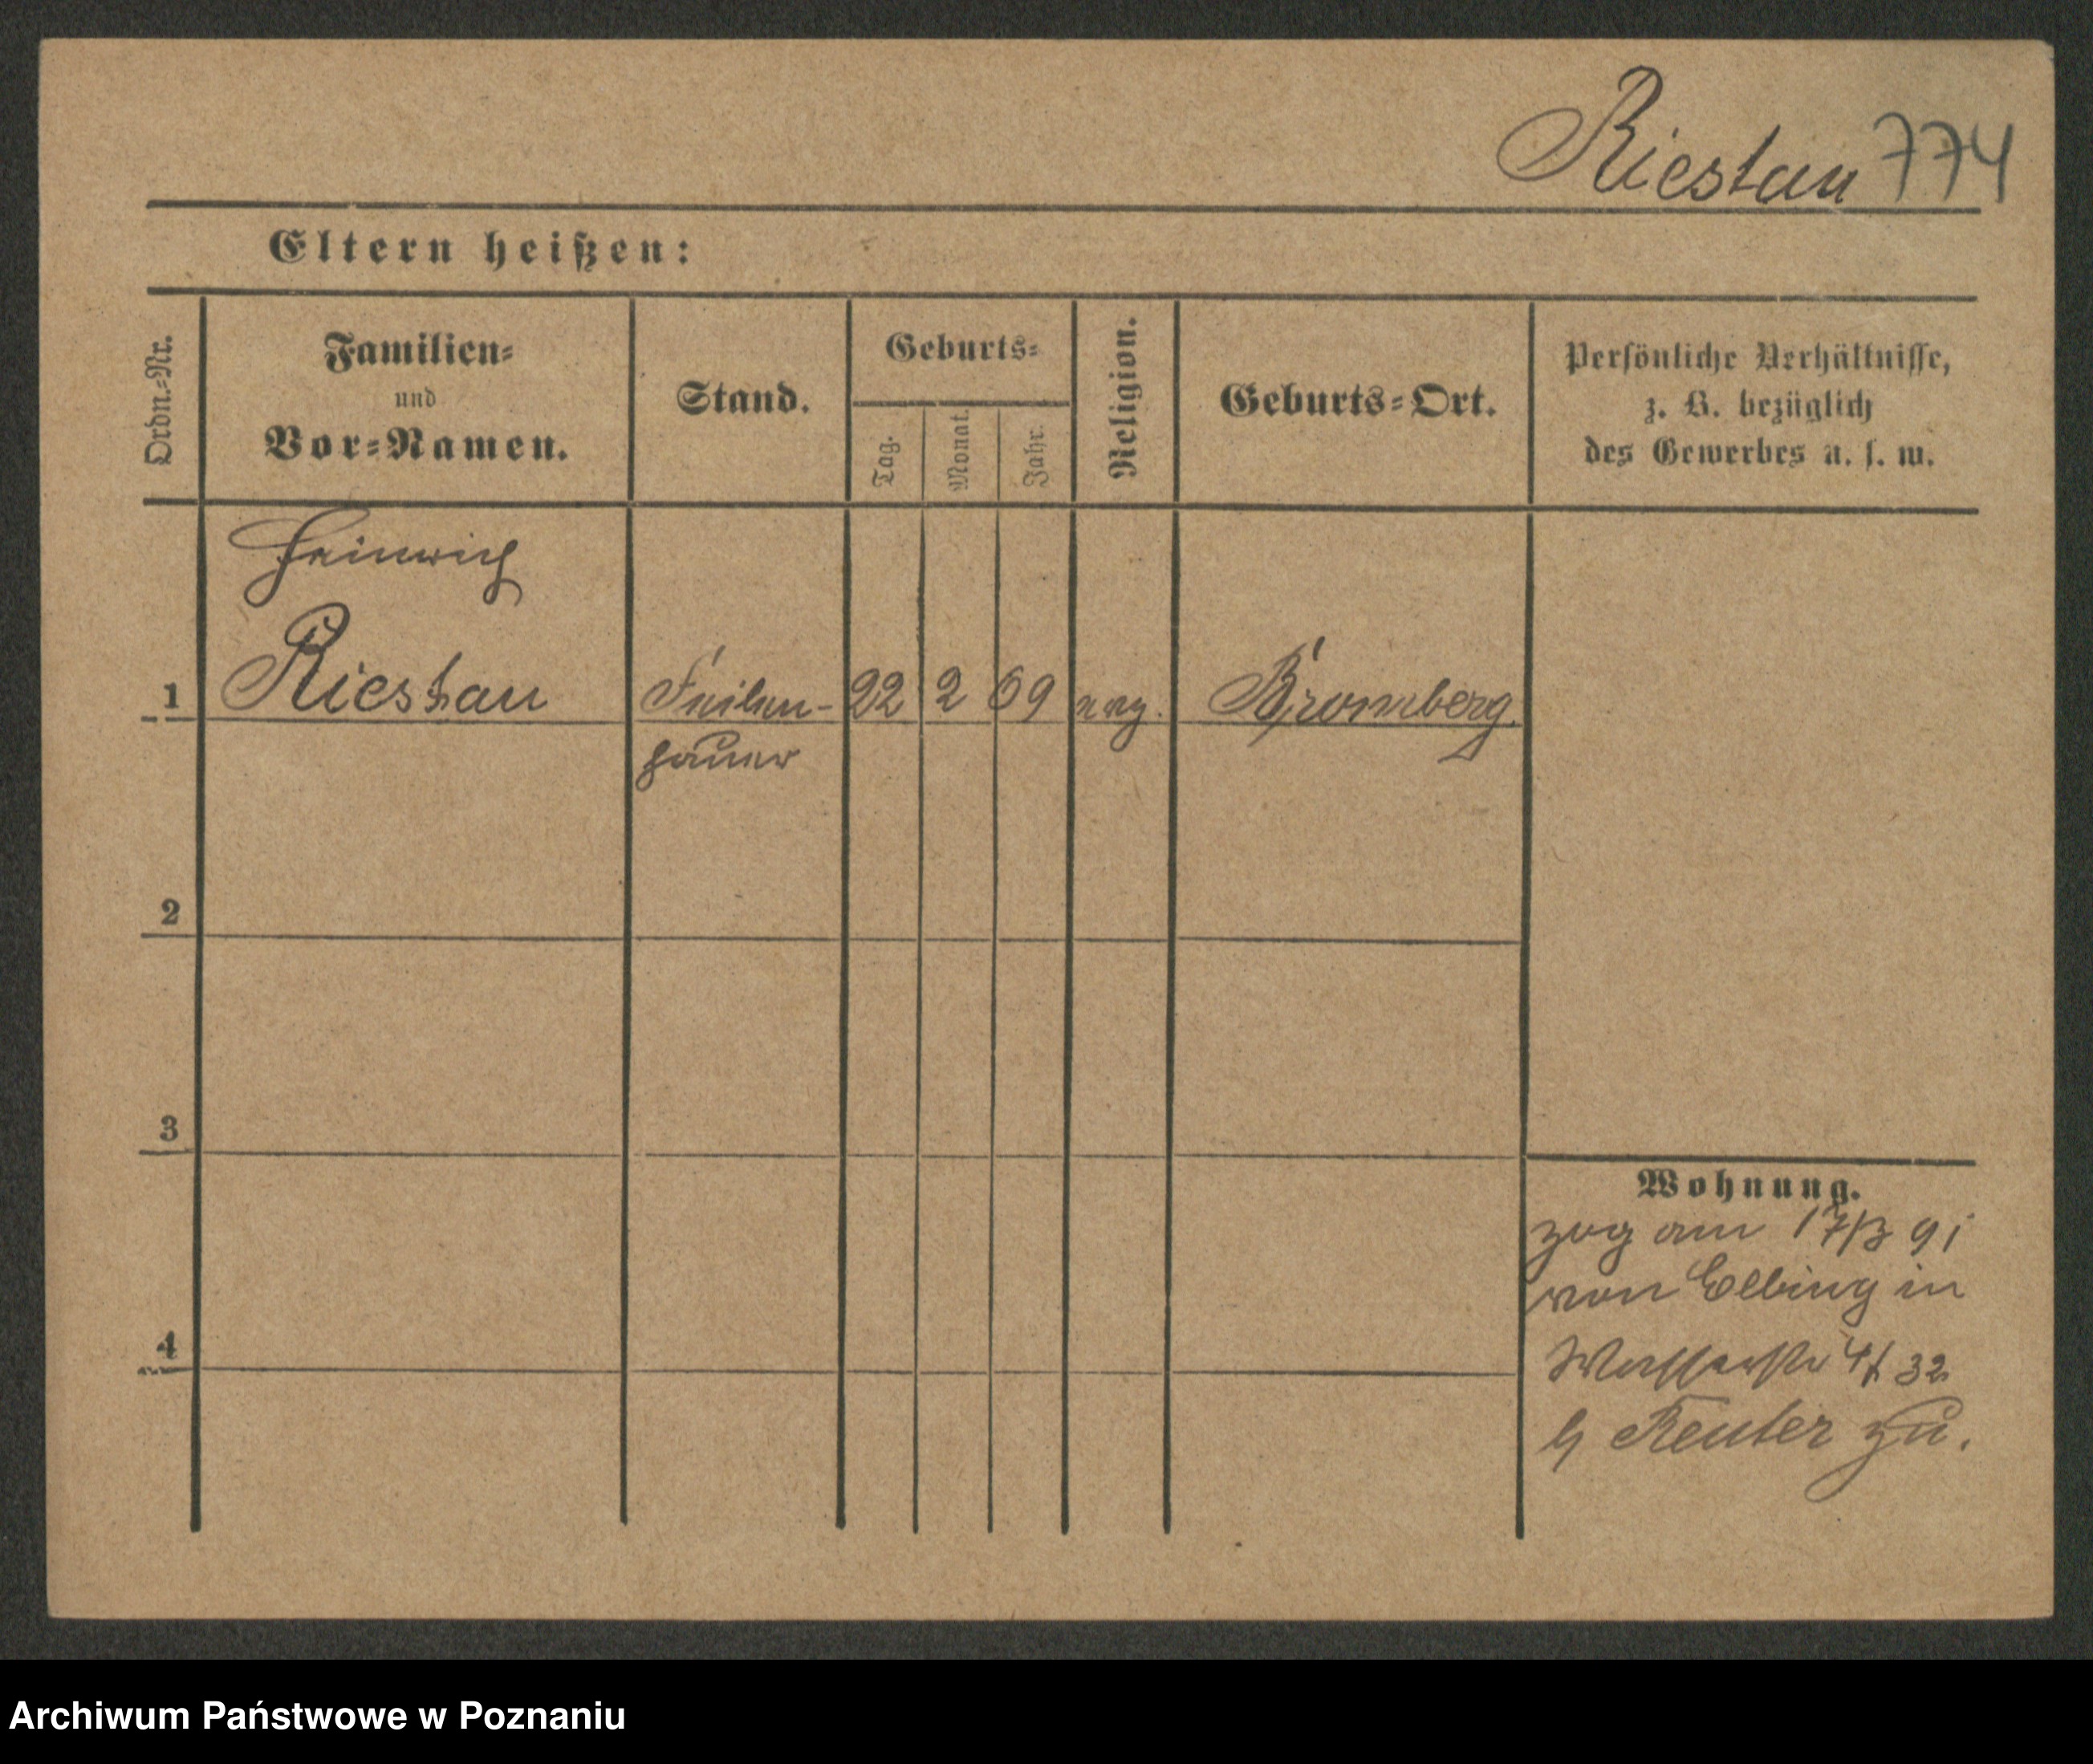 Riestau 774
Eltern heißen:
Ordn.-Nr.
Familien-
und
Vor-Namen.
Stand.
Geburts-
Tag.
Monat.
Jahr.
Religion.
Geburts-Ort.
Persönliche Verhältnisse,
z. B. bezüglich
des Gewerbes u. s. w.
Heinrich
1 Riestau Feilen- 22 2 69 evg. Bromberg.
hauer
2
3
4
Wohnung.
zog am 17/3 91
von Elbing in
Wasserstr 32
b/ Reuter zu.
Archiwum Państwowe w Poznaniu